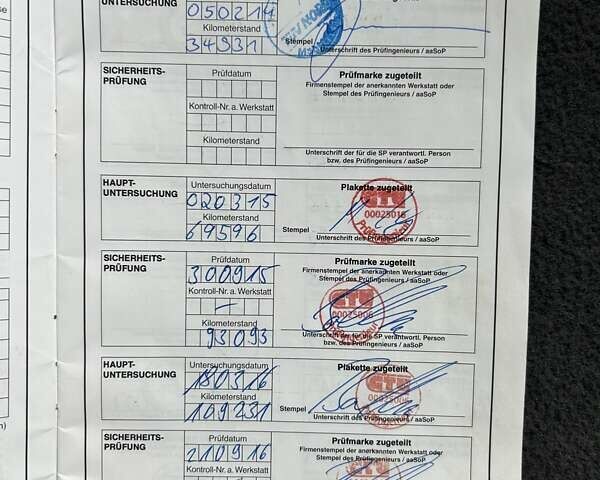 UNTERSUCHUNG
050214
Kilometerstand
34931
Stempel
Unterschrift des Prüfingenieurs / aaSoP
SICHERHEITS-
PRÜFUNG
Prüfdatum
Kontroll-Nr. a. Werkstatt
Kilometerstand
Prüfmarke zugeteilt
Firmenstempel der anerkannten Werkstatt oder
Stempel des Prüfingenieurs / aaSoP
Unterschrift der für die SP verantwortl. Person
bzw. des Prüfingenieurs / aaSoP
HAUPT-
UNTERSUCHUNG
Untersuchungsdatum
020315
Kilometerstand
69596
Plakette zugeteilt
00025016
Prüfingenieur
Stempel
Unterschrift des Prüfingenieurs / aaSoP
SICHERHEITS-
PRÜFUNG
Prüfdatum
300915
Kontroll-Nr. a. Werkstatt
-
Kilometerstand
93093
Prüfmarke zugeteilt
Firmenstempel der anerkannten Werkstatt oder
Stempel des Prüfingenieurs / aaSoP
Unterschrift der für die SP verantwortl. Person
bzw. des Prüfingenieurs / aaSoP
HAUPT-
UNTERSUCHUNG
Untersuchungsdatum
180316
Kilometerstand
109231
Plakette zugeteilt
Stempel
Unterschrift des Prüfingenieurs / aaSoP
SICHERHEITS-
PRÜFUNG
Prüfdatum
210916
Kontroll-Nr. a. Werkstatt
Prüfmarke zugeteilt
Firmenstempel der anerkannten Werkstatt oder
Stempel des Prüfingenieurs / aaSoP